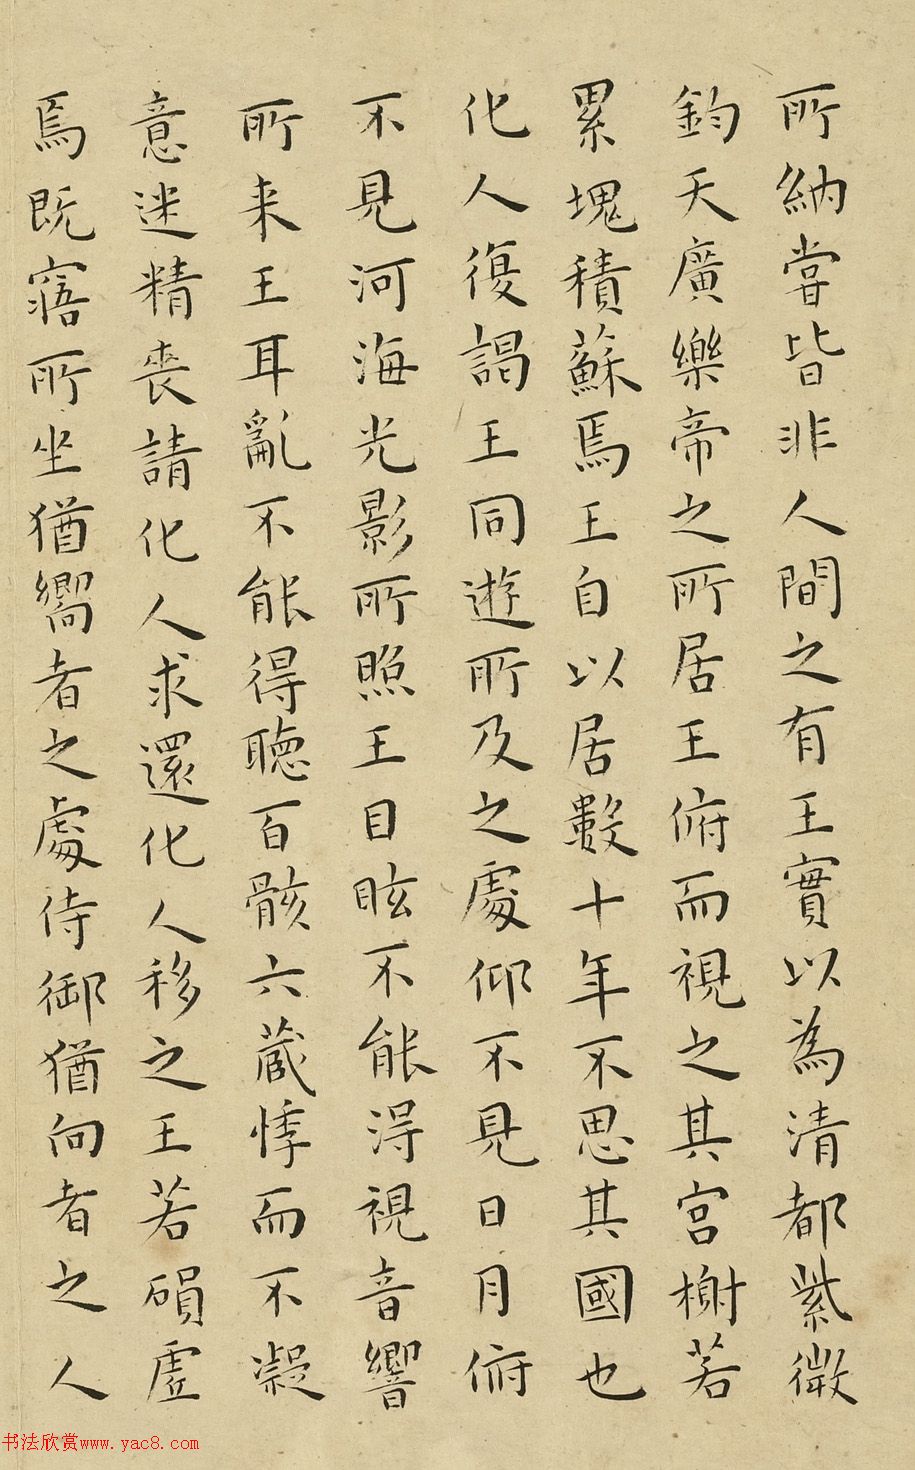 所納嘗皆非人間之有王實以為清都紫微
鈞天廣樂帝之所居王俯而視之其宮榭若
累塊積蘇焉王自以居數十年不思其國也
化人復謁王同遊所及之處仰不見日月俯
不見河海光影所照王目眩不能得視音響
所来王耳亂不能得聴百骸六蔵悸而不凝
意迷精喪請化人求還化人移之王若磒虛
焉既寤所坐猶嚮者之處侍御猶向者之人
书法欣赏www.yac8.com